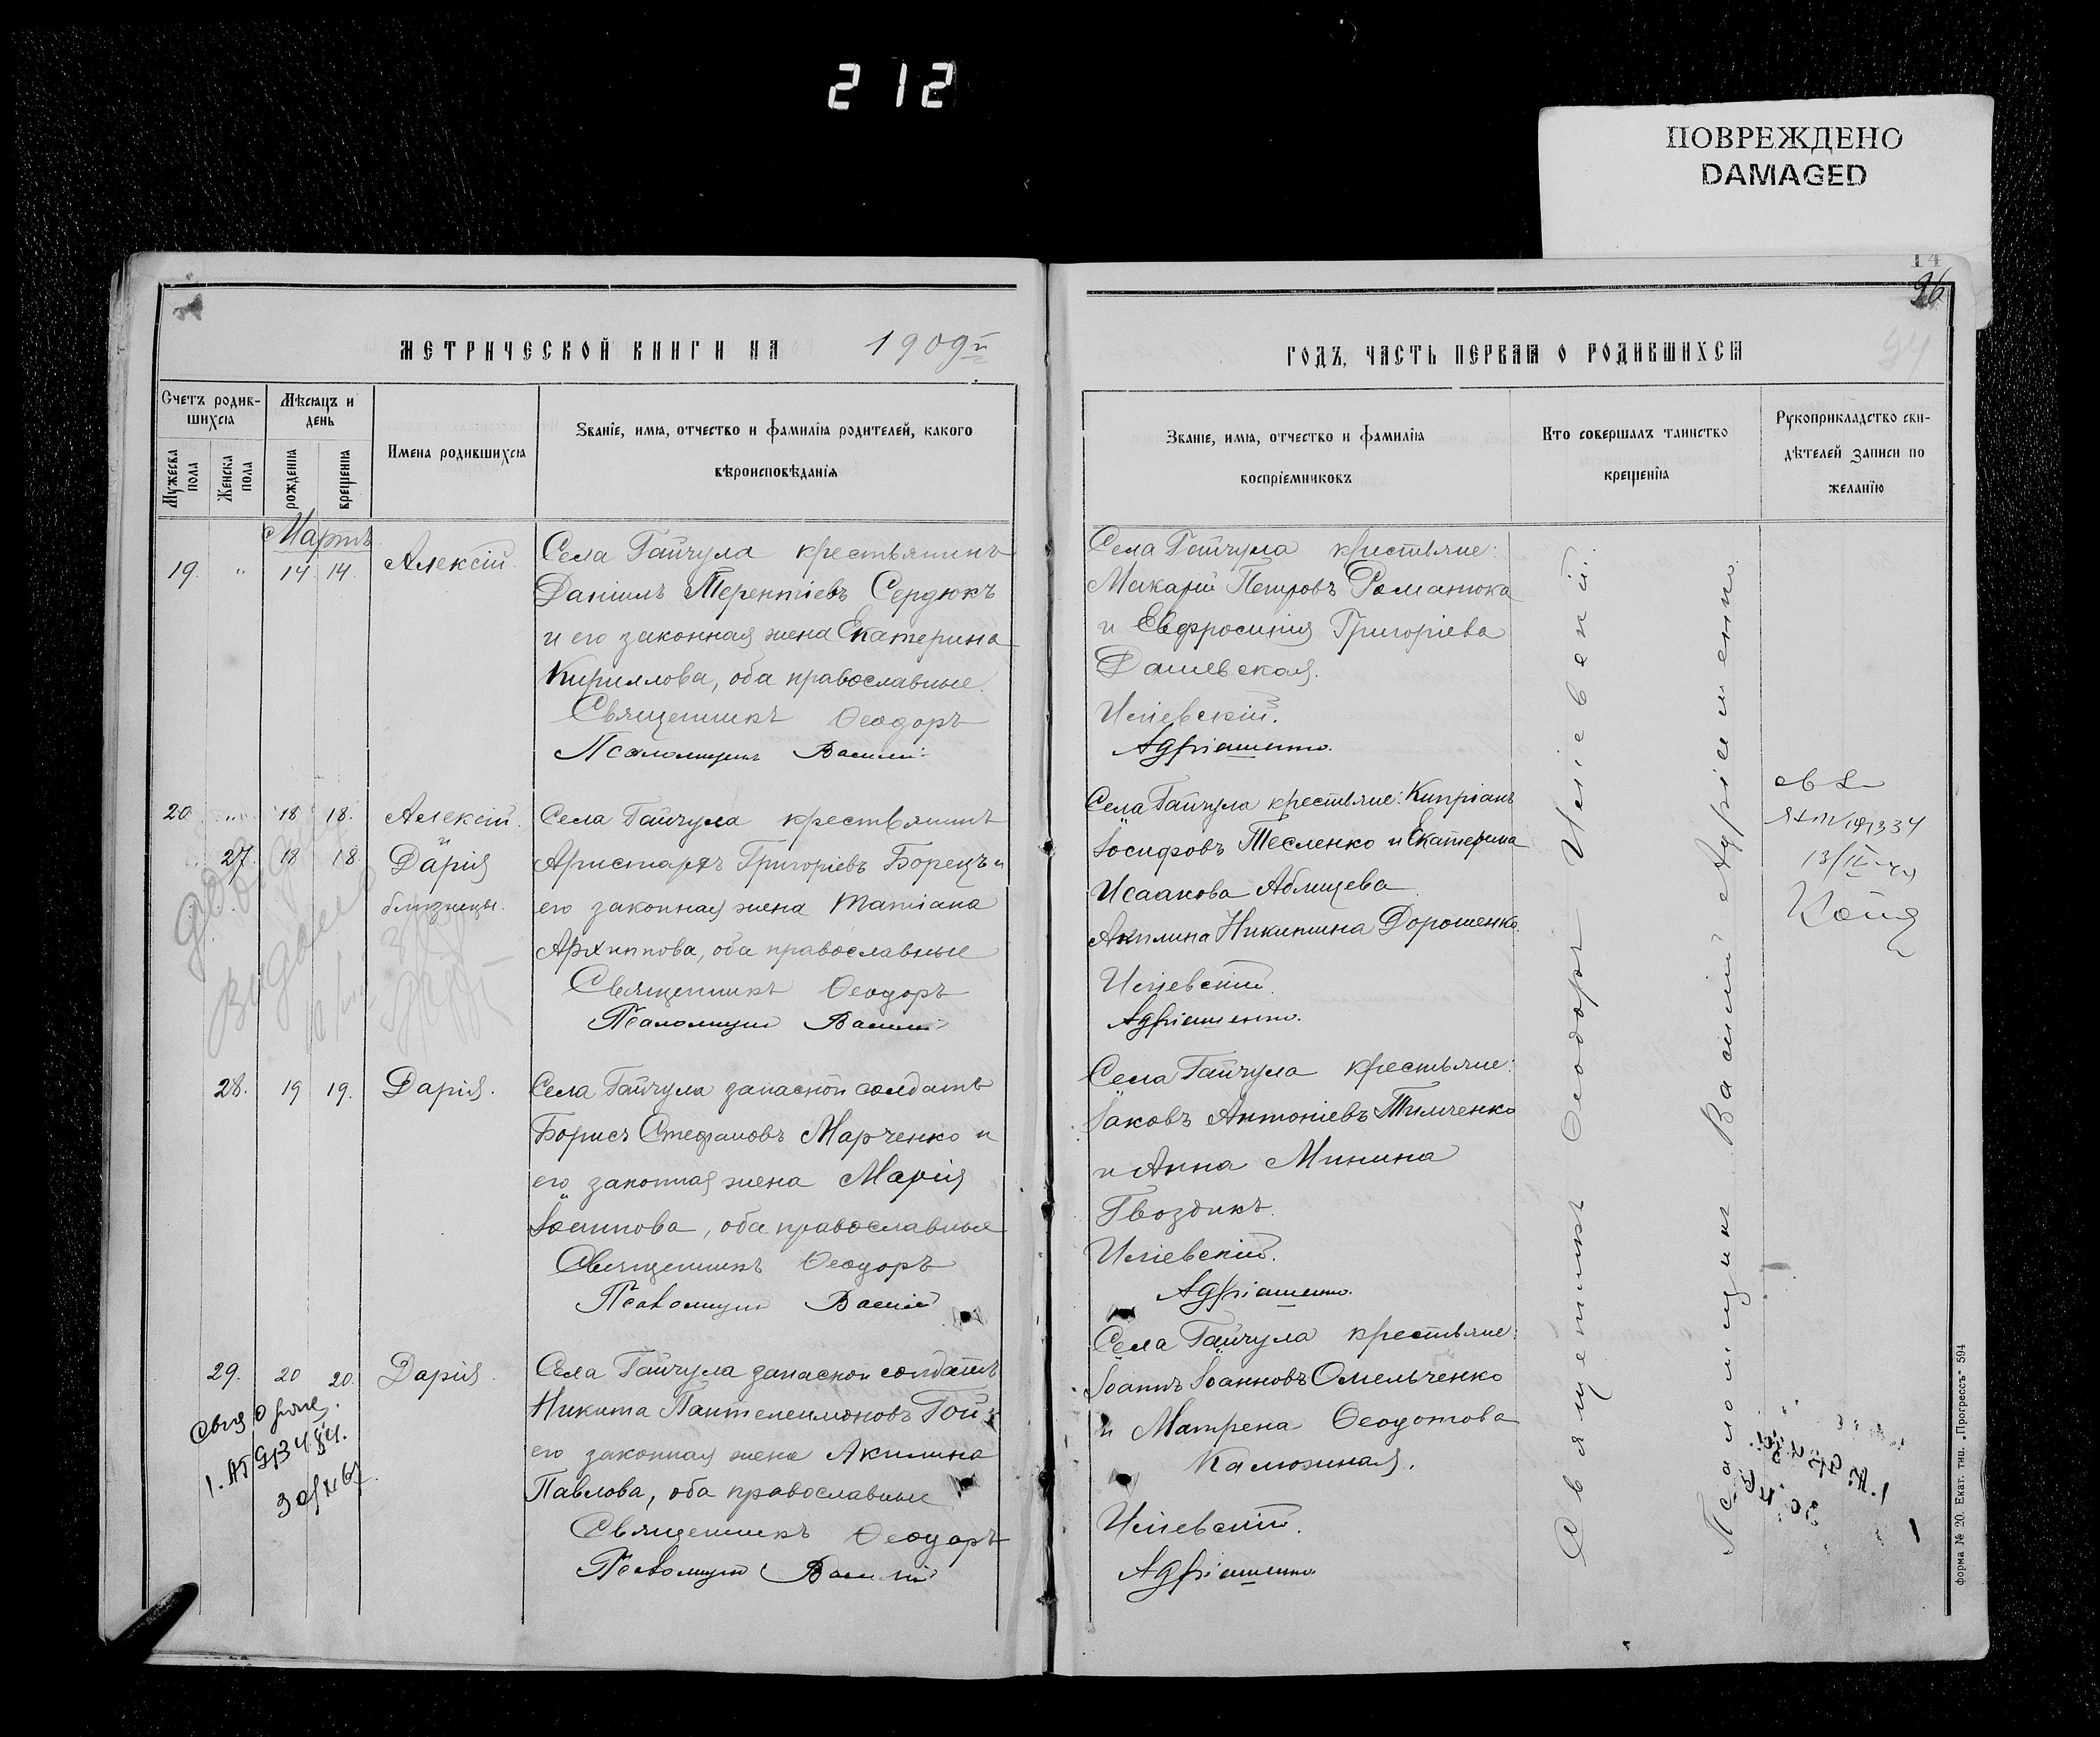 212
ПОВРЕЖДЕНО
DAMAGED
14
96
94
МЕТРИЧЕСКОЙ КНИГИ НА 1909й
Счетъ родившихся
Мужеска пола
Женска пола
Мѣсяцъ и день
рожденія
крещенія
Имена родившихся
Званіе, имя, отчество и фамилія родителей, какого
вѣроисповѣданія
Мартъ
19. " 14 14. Алексій.
Села Гайчула крестьянинъ
Даніилъ Терентіевъ Сердюкъ
и его законная жена Екатерина
Кириллова, оба православные.
Священникъ Ѳеодоръ
Псаломщикъ Василій
20 " 18 18. Алексій
и
27. 18 18 Дарія
близнецы.
Села Гайчула крестьянинъ
Аристархъ Григоріевъ Борецъ и
его законная жена Татіана
Архиппова, оба православные
Священникъ Ѳеодоръ
Псаломщикъ Василій
28. 19 19. Дарія.
Села Гайчула запасной солдатъ
Борисъ Стефановъ Марченко и
его законная жена Марія
Іоаннова, оба православные
Священникъ Ѳеодоръ
Псаломщикъ Василій
29. 20 20. Дарія.
Села Гайчула запасной солдатъ
Никита Пантелеимоновъ Гой и
его законная жена Акилина
Павлова, оба православные
Священникъ Ѳеодоръ
Псаломщикъ Василій
ГОДЪ, ЧАСТЬ ПЕРВАЯ О РОДИВШИХСЯ
Званіе, имя, отчество и фамилія
воспріемниковъ
Кто совершалъ таинство
крещенія
Рукоприкладство сви-
дѣтелей записи по
желанію
Села Гайчула крестьяне:
Макарій Петровъ Романюка
и Евфросинія Григоріева
Дашевская.
Иліевскій.
Адріашенко.
Села Гайчула крестьяне: Кипріанъ
Іосифовъ Тесленко и Екатерина
Исаакова Аблицева
Акилина Никитина Дорошенко.
Иліевскій.
Адріашенко.
Села Гайчула крестьяне:
Іаковъ Антоніевъ Тимченко
и Анна Минина
Гвоздикъ.
Иліевскій.
Адріашенко.
Села Гайчула крестьяне:
Іоаннъ Іоанновъ Омельченко
и Матрена Ѳеодотова
Калюжная.
Иліевскій.
Адріашенко
Священникъ Ѳеодоръ Иліевскій.
Псаломщикъ Василій Адріашенко.
форма № 20. Екат. тип. „Прогрессъ" 594